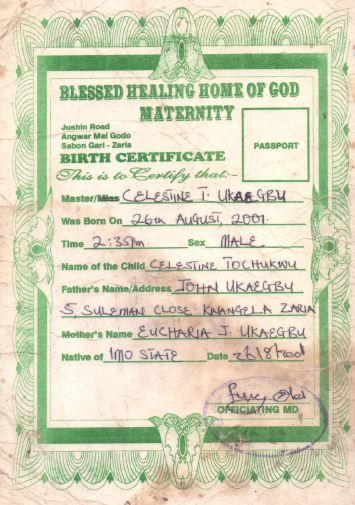 BLESSED HEALING HOME OF GOD
MATERNITY
Jushin Road
Angwar Mai Godo
Sabon Gari - Zaria
PASSPORT
BIRTH CERTIFICATE
This is to Certify that:-
Master/Miss CELESTINE T. UKAEGBU
Was Born On 26th AUGUST, 2001.
Time 2:35pm Sex MALE
Name of the Child CELESTINE TOCHUKWU
Father's Name/Address JOHN UKAEGBU
5, SULEMAN CLOSE KWANGELA ZARIA
Mother's Name EUCHARIA J. UKAEGBU
Native of IMO STATE Date
OFFICIATING MD